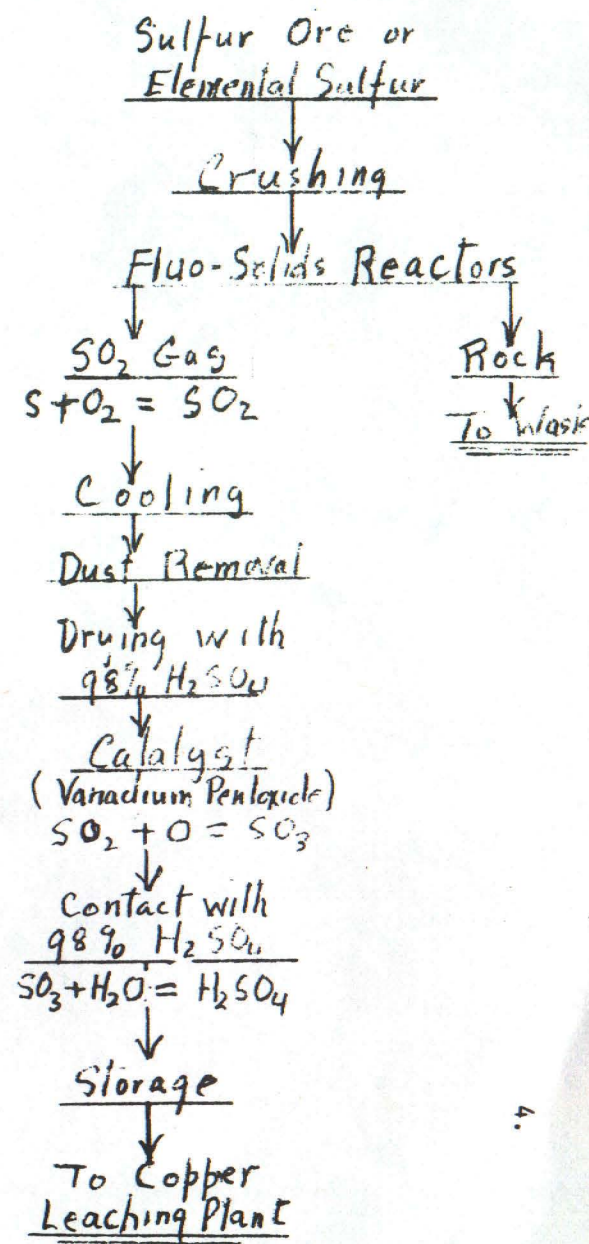 Sulfur Ore or
Elemental Sulfur
Crushing
Fluo-Solids Reactors
SO₂ Gas
S+O₂ = SO₂
Rock
To Waste
Cooling
Dust Removal
Drying with
98% H₂SO₄
Catalyst
(Vanadium Pentoxide)
SO₂ + O = SO₃
Contact with
98% H₂SO₄
SO₃+H₂O = H₂SO₄
Storage
To Copper
Leaching Plant
4.